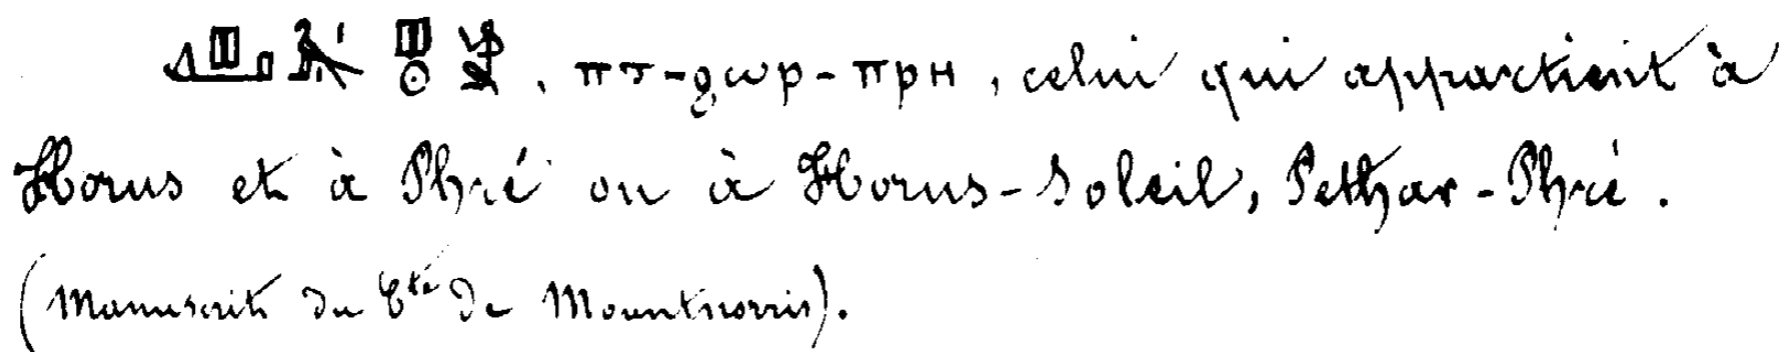 , ⲡⲧ-ϩⲱⲣ-ⲡⲣⲏ, celui qui appartient à
Horus et à Phré ou à Horus-Soleil, Pethar-Phré.
(Manuscrit du Cte de Mountnorris).